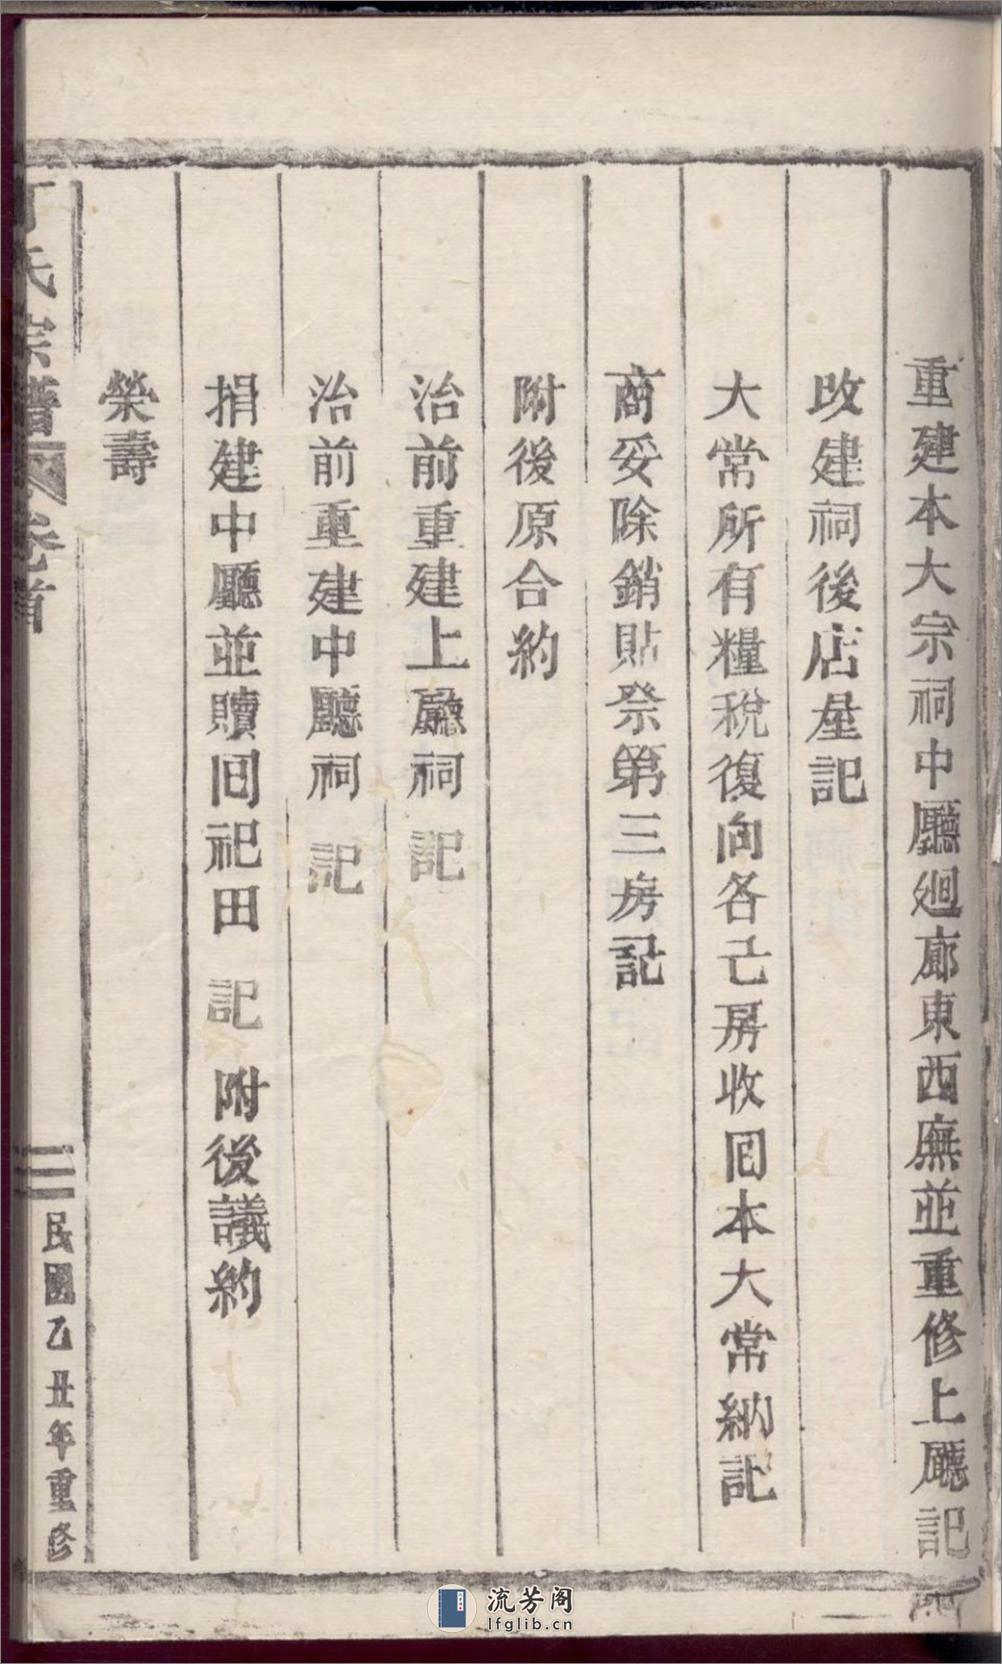 重建本大宗祠中廳廻廊東西廡並重修上廳記
改建祠後店屋記
大常所有糧稅復向各己房收囘本大常納記
商妥除銷貼祭第三房記
附後原合約
治前重建上廳祠記
治前重建中廳祠記
捐建中廳並贖囘祀田記附後議約
榮壽
丁氏宗譜 卷首 二 民國乙丑年重修
流芳阁
lfglib.cn